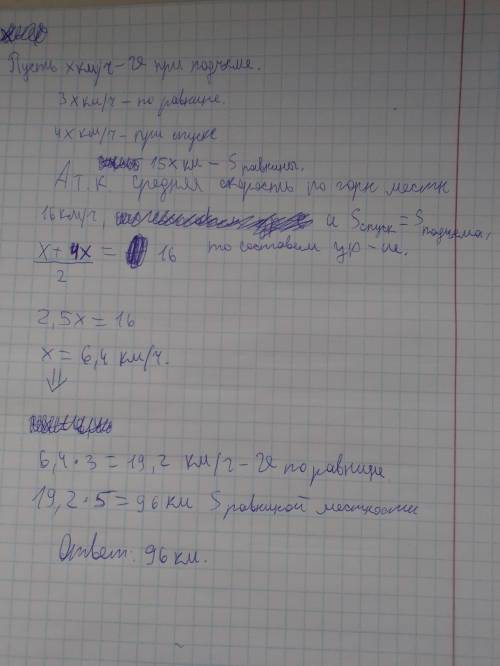 Пусть x км/ч – ϑ при подъеме.
3x км/ч – по равнине.
4x км/ч – при спуске
15x км – S равнины.
А т.к средняя скорость по горн местн
16 км/ч, и S спуск = S подъема,
x + 4x / 2 = 16 то составим ур-ие.
2,5x = 16
x = 6,4 км/ч.
⇓
6,4 · 3 = 19,2 км/ч – ϑ по равнине
19,2 · 5 = 96 км S равниной местности
Ответ: 96 км.